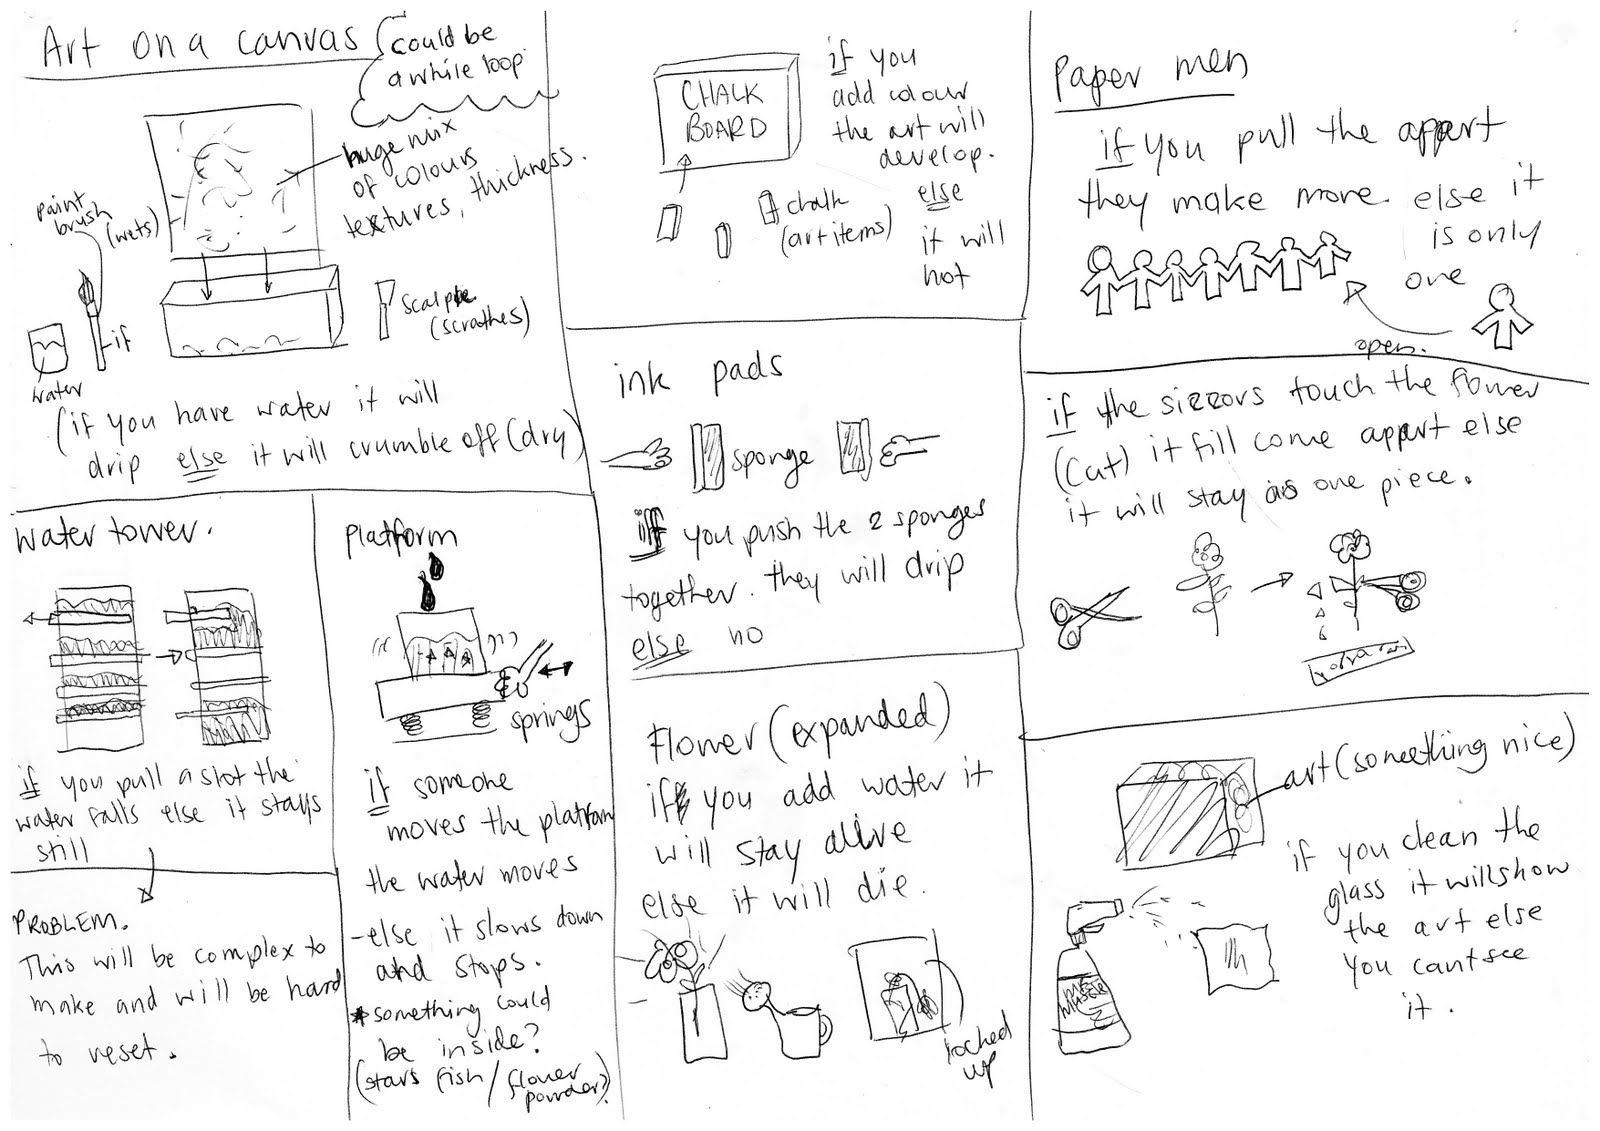 Art on a canvas
could be
a while loop
huge mix
of colours
textures, thickness.
paint
brush
(wets)
if
water
scalple
(scrathes)
(if you have water it will
drip else it will crumble off (dry)
water tower.
if you pull a slot the
water falls else it stays
still
PROBLEM.
This will be complex to
make and will be hard
to reset.
platform
springs
if someone
moves the platform
the water moves
-else it slows down
and stops.
*something could
be inside?
(stars fish / flower
powder?)
CHALK
BOARD
chalk
(art items)
if you
add colour
the art will
develop.
else
it will
not
ink pads
sponge
if you push the 2 sponges
together. they will drip
else no
Flower (expanded)
if you add water it
will stay alive
else it will die.
locked
up
Paper men
if you pull the appart
they make more else it
is only
one
open.
if the sizzors touch the flower
(cut) it fill come appart else
it will stay as one piece.
art (something nice)
if you clean the
glass it will show
the art else
you cant see
it.
MR
MUSCLE